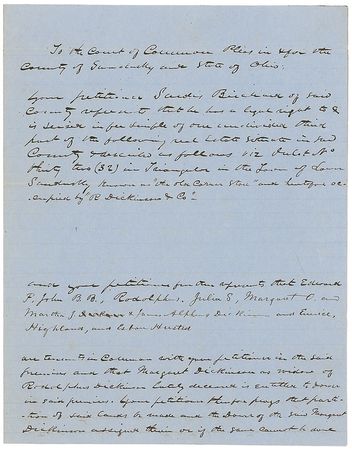 To the Court of Common Pleas in & for the
County of Sandusky and State of Ohio:
Your petitioner Sardis Birchard of said
County represents that he has a legal right to &
is seized in fee simple of one undivided third
part of the following real Estate situate in said
County & described as follows viz Inlot No
thirty two (32) in in the Town of Lower
Sandusky known as "the old Corner Store" and heretofore oc-
cupied by "R. Dickinson & Co"
and your petitioner further represents that Edward
F, John B. B., Rodolphus, Julia E, Margaret O. and
Martha J Dickinson & James Alpheus Dickinson and Eunice,
Highland, and Husted
are tenants in Common with your petitioner in the said
premises and that Margaret Dickinson as widow of
Rodolphus Dickinson lately deceased is entitled to Dower
in said premises. Your petitioner therefore prays that parti-
tion of said lands be made and the Dower of the said Margaret
Dickinson assigned therein or if the same cannot be done